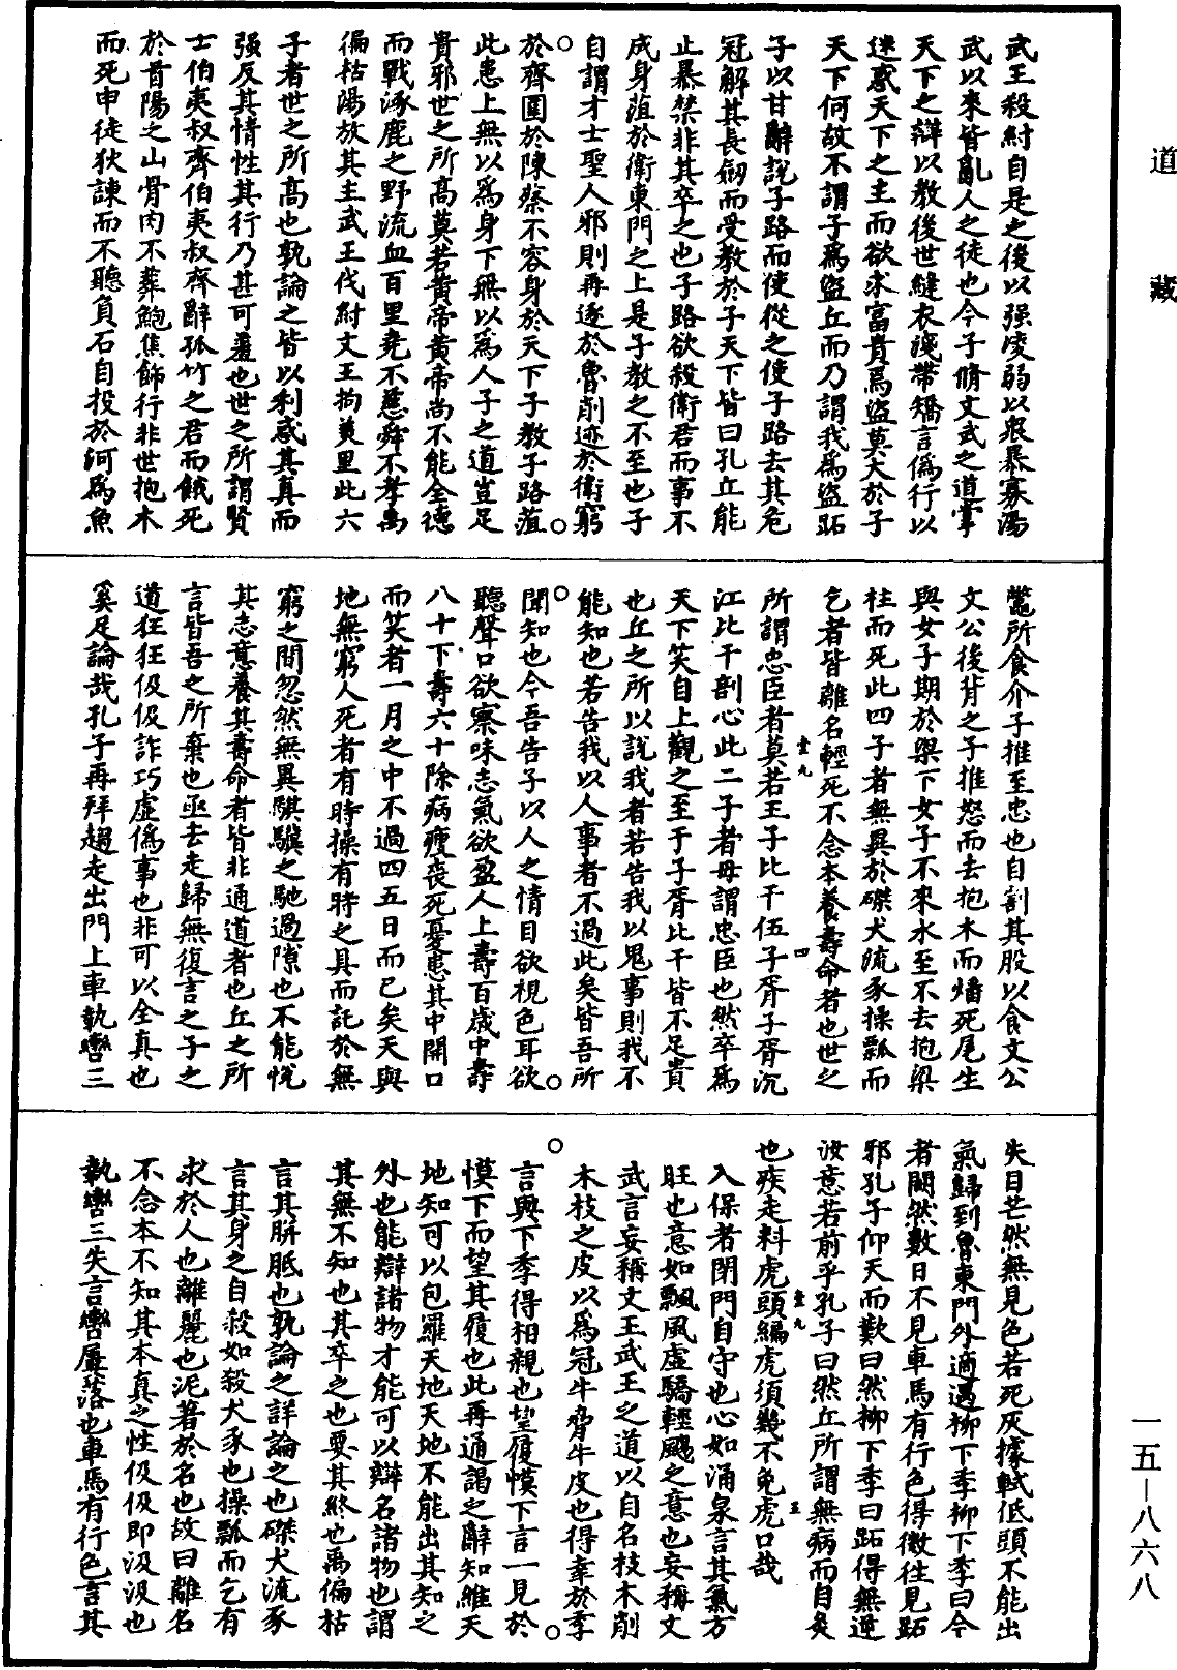 道藏
武王殺紂自是之後以强凌弱以衆暴寡湯
武以來皆亂人之徒也今子脩文武之道掌
天下之辯以教後世縫衣淺帶矯言僞行以
迷惑天下之主而欲求富貴焉盜莫大於子
天下何故不謂子爲盜丘而乃謂我爲盜跖
子以甘辭說子路而使從之使子路去其危
冠解其長劒而受教於子天下皆曰孔丘能
止暴禁非其卒之也子路欲殺衛君而事不
成身菹於衛東門之上是子教之不至也子
自謂才士聖人邪則再逐於魯削迹於衛窮
於齊圍於陳蔡不容身於天下子教子路菹
此患上無以爲身下無以爲人子之道豈足
貴邪世之所高莫若黃帝黃帝尚不能全德
而戰涿鹿之野流血百里堯不慈舜不孝禹
徧枯湯放其主武王伐紂文王拘羑里此六
子者世之所高也孰論之皆以利惑其真而
强反其情性其行乃甚可羞也世之所謂賢
士伯夷叔齊伯夷叔齊辭孤竹之君而餓死
於首陽之山骨肉不葬鮑焦飾行非世抱木
而死申徒狄諫而不聽負石自投於河爲魚
鼈所食介子推至忠也自割其股以食文公
文公後背之子推怒而去抱木而燔死尾生
與女子期於梁下女子不來水至不去抱梁
柱而死此四子者無異於磔犬流豕操瓢而
乞者皆離名輕死不念本養壽命者也世之
所謂忠臣者莫若王子比干伍子胥子胥沉
江比干剖心此二子者毋謂忠臣也然卒爲
天下笑自上觀之至于子胥比干皆不足貴
也丘之所以說我者若告我以鬼事則我不
能知也若告我以人事者不過此矣皆吾所
聞知也今吾告子以人之情目欲視色耳欲
聽聲口欲察味志氣欲盈人上壽百歲中壽
八十下壽六十除病瘦丧死憂患其中開口
而笑者一月之中不過四五日而已矣天與
地無窮人死者有時操有時之具而託於無
窮之間忽然無異騏驥之馳過隙也不能悅
其志意養其壽命者皆非通道者也丘之所
言皆吾之所棄也亟去走歸無復言之子之
道狂狂伋伋詐巧虛僞事也非可以全真也
奚足論哉孔子再拜趨走出門上車執轡三
失目芒然無見色若死灰據軾低頭不能出
氣歸到魯東門外適遇柳下季柳下季曰今
者闕然數日不見車馬有行色得微往見跖
邪孔子仰天而歎曰然柳下季曰跖得無逆
汝意若前乎孔子曰然丘所謂無病而自灸
也疾走料虎頭編虎須幾不免虎口哉
入保者閉門自守也心如涌泉言其氣方
旺也意如飄風虛驕輕颺之意也妄稱文
武言妄稱文王武王之道以自名枝木削
木枝之皮以爲冠牛脅牛皮也得幸於季
言與下季得相親也望履幙下言一見於
幙下而望其履也此再通謁之辭知維天
地知可以包羅天地天地不能出其知之
外也能辯諸物才能可以辯名諸物也謂
其無不知也其卒之也要其終也禹偏枯
言其胼胝也孰論之詳論之也磔犬流豕
言其身之自殺如殺犬豕也操瓢而乞有
求於人也離麗也泥著於名也故曰離名
不念本不知其本真之性伋伋即汲汲也
執轡三失言轡屢落也車馬有行色言其
一五—八六八